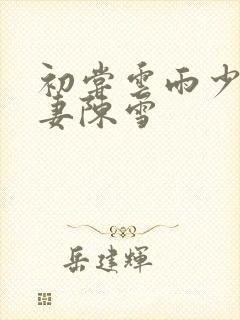 初嘗雲雨少
妻陳雪
岳建輝